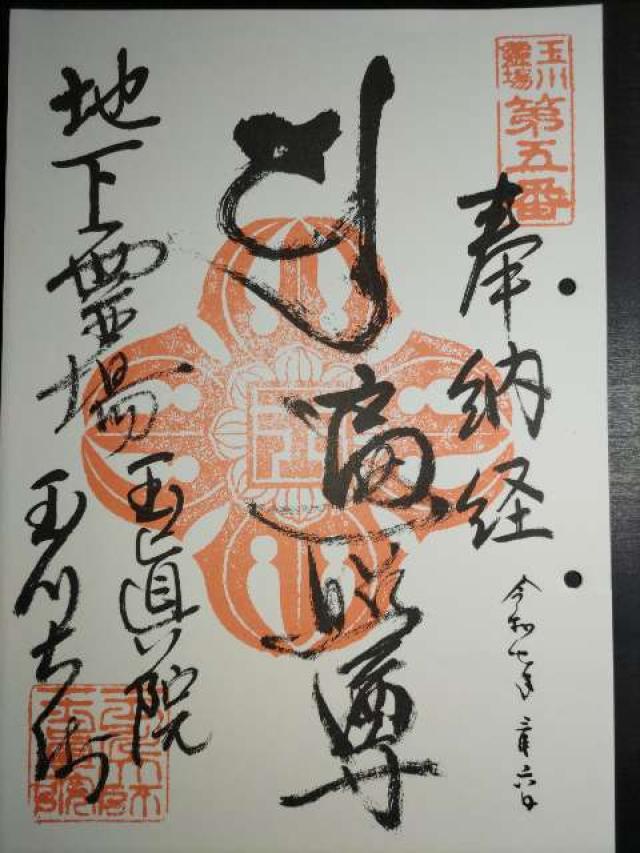 玉川
霊場
第五番
奉納経
令和七年二月六日
遍照尊
地下霊場玉眞院
玉川大師